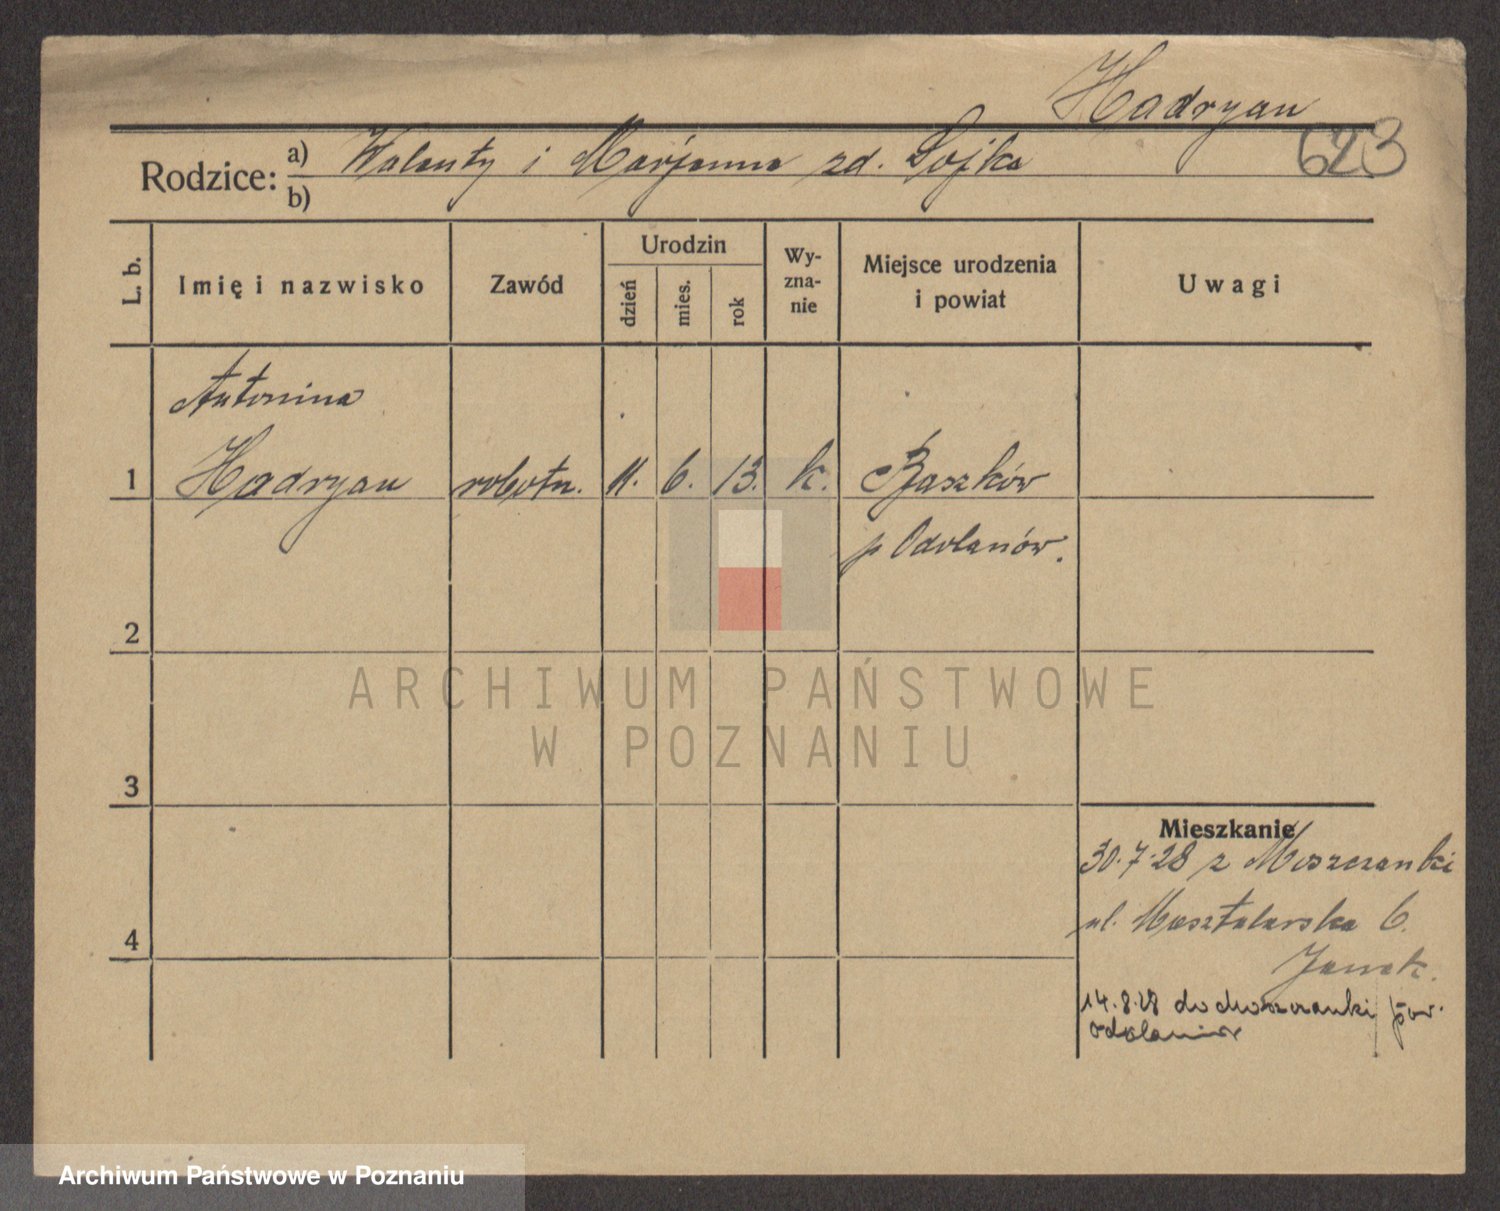 Hadryan
623
Rodzice: a) Walenty i Marjanna zd. Sojka
b)
L. b.
Imię i nazwisko
Zawód
Urodzin
dzień
mies.
rok
Wy-
zna-
nie
Miejsce urodzenia
i powiat
Uwagi
Antonina
1 Hadryan robotn. 11. 6. 13. k. Baszków
p Odolanów.
2
3
4
Mieszkanie
30.7.28 z Moszczanki
ul. Masztalarska 6.
14.8.28 do Moszczanki pow.
Odolanów
ARCHIWUM PAŃSTWOWE
W POZNANIU
Archiwum Państwowe w Poznaniu